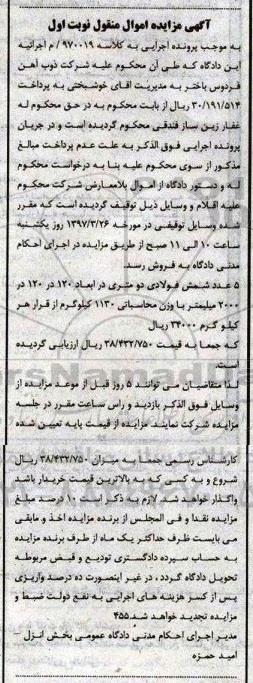 آگهی مزایده اموال منقول نوبت اول
به موجب پرونده اجرایی به کلاسه ۹۷۰۰۱۹ / م اجرائیه
این دادگاه که طی آن محکوم علیه شرکت ذوب آهن
فردوس باختر به مدیریت آقای خوشبختی به پرداخت
۳۰/۱۹۱/۵۱۴ ریال از بابت محکوم به در حق محکوم له
غفار زین ساز فندقی محکوم گردیده است و در جریان
پرونده اجرایی فوق الذکر به علت عدم پرداخت مبالغ
مذکور از سوی محکوم علیه بنا به درخواست محکوم
له و دستور دادگاه از اموال بلامعارض شرکت محکوم
علیه اقلام و وسایل ذیل توقیف گردیده است که مقرر
شده وسایل توقیفی در مورخه ۱۳۹۷/۳/۲۶ روز یکشنبه
ساعت ۱۰ الی ۱۱ صبح از طریق مزایده در اجرای احکام
مدنی دادگاه به فروش رسد.
۵ عدد شمش فولادی دو متری در ابعاد ۱۲۰ در ۱۲۰ در
۲۰۰۰ میلیمتر با وزن محاسباتی ۱۱۳۰ کیلوگرم از قرار هر
کیلو گرم ۳۴۰۰۰ ریال
که جمعا به قیمت ۳۸/۴۳۲/۷۵۰ ریال ارزیابی گردیده
است.
لذا متقاضیان می توانند ۵ روز قبل از موعد مزایده از
وسایل فوق الذکر بازدید و راس ساعت مقرر در جلسه
مزایده شرکت نمایند مزایده از قیمت پایه تعیین شده
کارشناس رسمی جمعا به میزان ۳۸/۴۳۲/۷۵۰ ریال
شروع و به کسی که به بالاترین قیمت خریدار باشد
واگذار خواهد شد. لازم به ذکر است ۱۰ درصد مبلغ
مزایده نقدا و فی المجلس از برنده مزایده اخذ و مابقی
می بایست ظرف حداکثر یک ماه از طرف برنده مزایده
به حساب سپرده دادگستری تودیع و قبض مربوطه
تحویل دادگاه گردد، در غیر اینصورت ده درصد واریزی
پس از کسر هزینه های اجرایی به نفع دولت ضبط و
مزایده تجدید خواهد شد.۴۵۵
مدیر اجرای احکام مدنی دادگاه عمومی بخش انزل –
امید حمزه